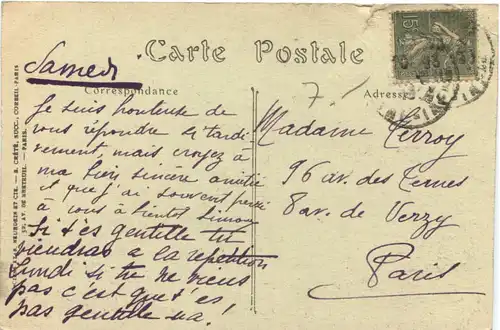 Carte Postale
Correspondance
Adresse
15c
7.
Samedi
Je suis honteuse de
vous répondre si tardi
vement, mais croyez à
ma bien sincère amitié
et que j'ai souvent pensé
à vous à bientôt Simone
Si t es gentille tu
viendras a la repetition
lundi si tu ne viens
pas c'est que t'es
pas gentille na!
Madame Terroy
96 av. des Ternes
8 av. de Verzy
Paris
NEURDEIN ET CIE. — E. CRÉTÉ, SUCC., CORBEIL-PARIS
52, AV. DE BRETEUIL. — PARIS.